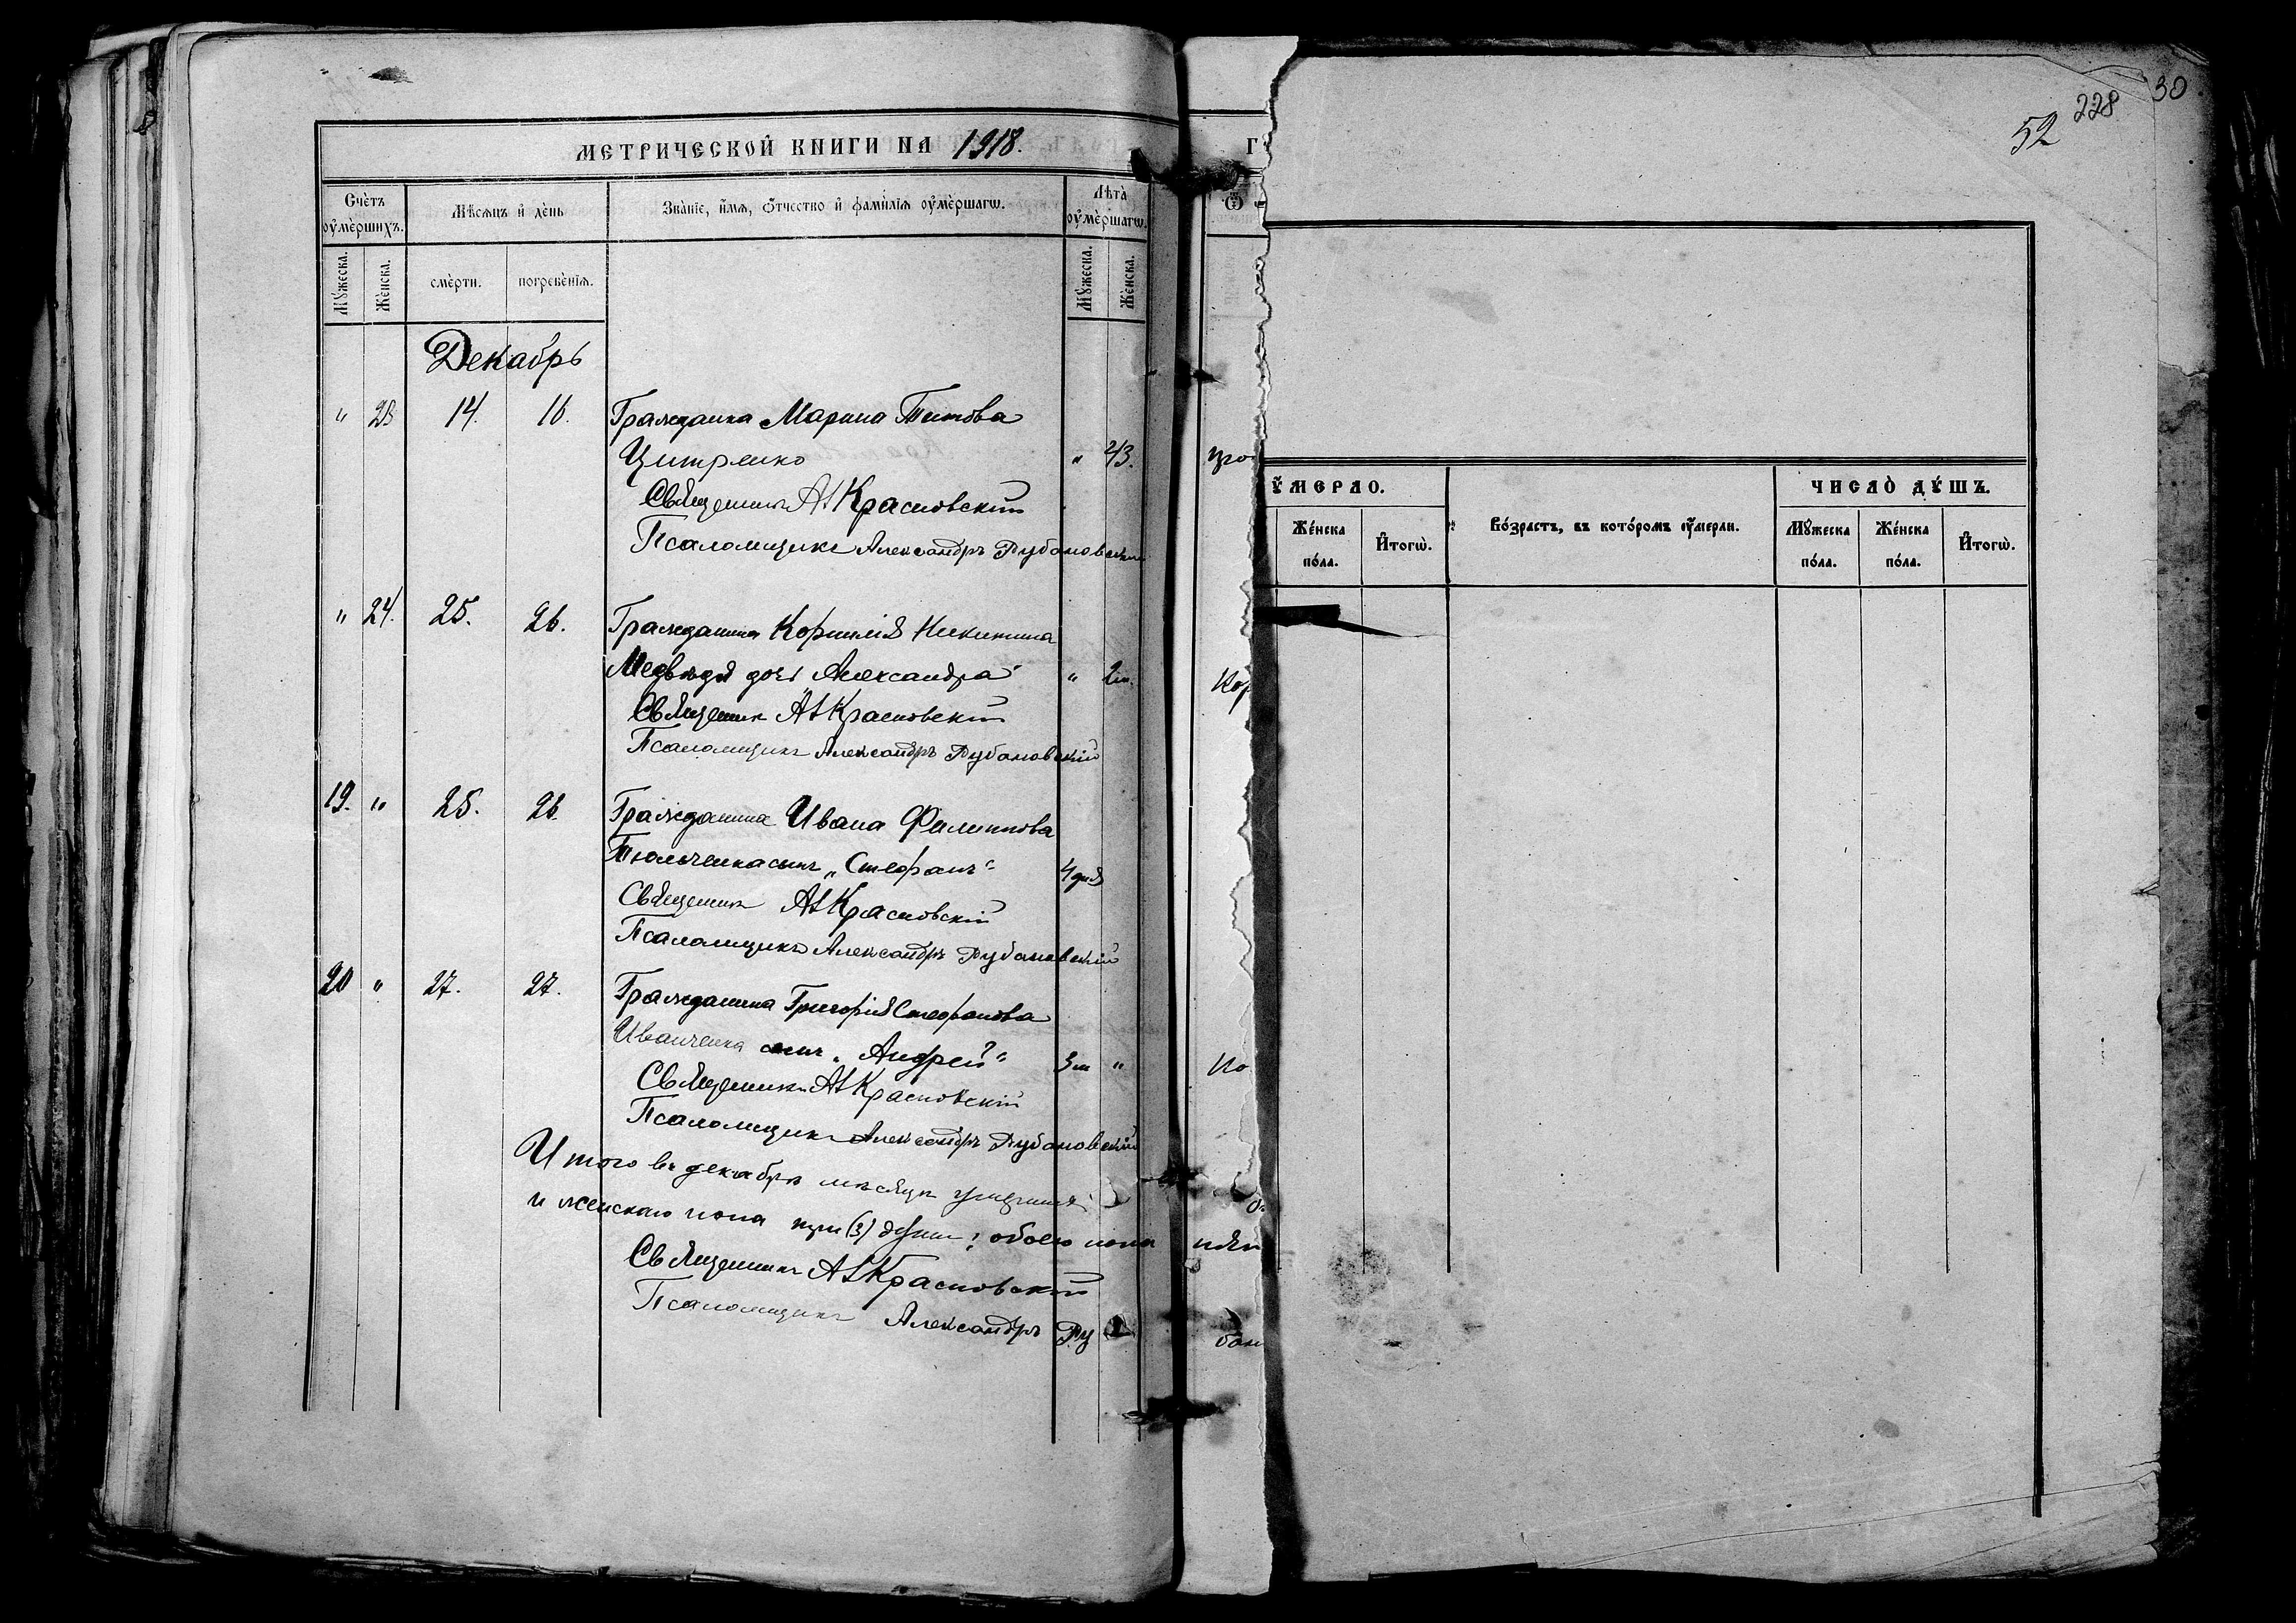 МЕТРИЧЕСКОЙ КНИГИ НА 1918.
Счѐтъ оу҆мѐршихъ.
Мѣсяцъ и҆ дѐнь
Зва̀нїе, и҆́мя, ѻ҆́тчество и҆ фами́лїя оу҆мѐршагѡ.
Лѣта̀ оу҆мѐршагѡ.
Мꙋ́жеска.
Жѐнска.
смѐрти.
погребѐнїя.
Мꙋ́жеска.
Жѐнска.
Декабрь
" 23 14. 16. Гражданка Марина Титова
" 43.
Священникъ А Красновскій
Псаломщикъ Александръ Рубановскій
" 24. 25. 26. Гражданина Корнилія Никитина
Медвѣдя дочь Александра " 2м.
Священник А Красновскій
Псаломщикъ Александръ Рубановскій
19. " 25. 26. Гражданина Ивана Филиппова
Тюльченка сынъ „Стефанъ“ 4 дня
Священник А Красновскій
Псаломщикъ Александръ Рубановскій
20 " 27. 27. Гражданина Григорія Стефанова
Иванченка сынъ „Андрей“ 3м "
Священникъ А Красновскій
Псаломщикъ Александръ Рубановскій
Итого въ декабрѣ мѣсяцѣ
и женскаго пола три (3) души; обоего пола
Священникъ А Красновскій
Псаломщикъ Александръ Ру
бан
Г
Ѿ
Кор
52
228
30
оу҆́МЕРЛО.
Же́нска по́ла.
И҆тогѡ̀.
Во́зрастъ, въ кото́ромъ оу҆́мерли.
ЧИСЛО̀ ДꙊ́ШЪ.
Мꙋ́жеска по́ла.
Же́нска по́ла.
И҆тогѡ̀.